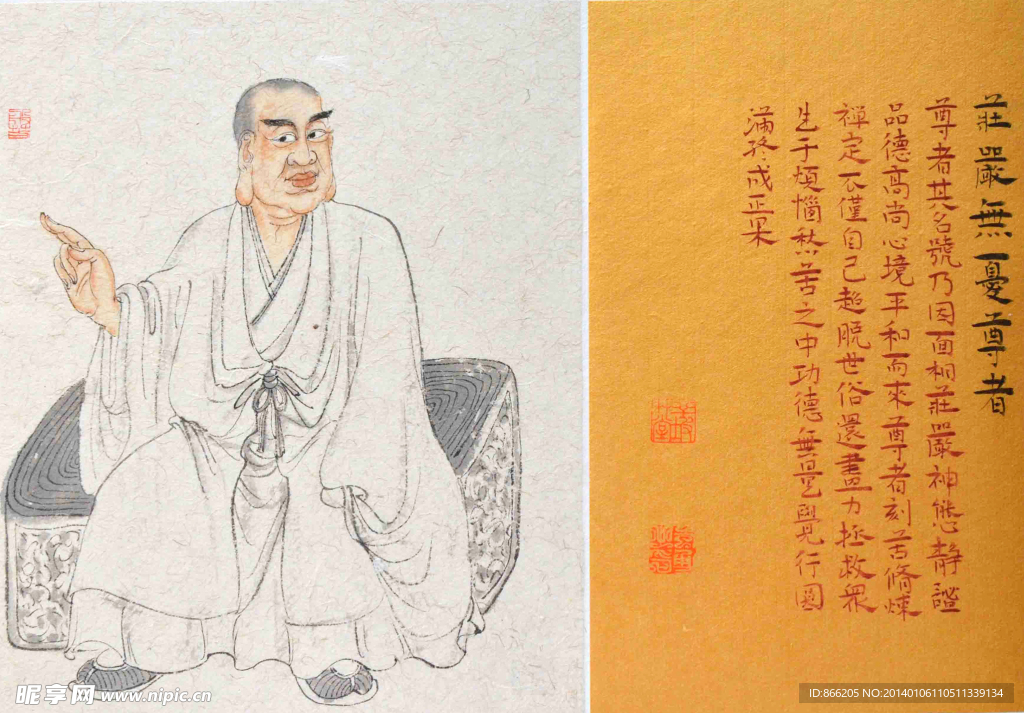 莊嚴無憂尊者
尊者其名號乃因面相莊嚴神態静證
品德高尚心境平和而來尊者刻苦脩煉
禅定不僅自己超脱世俗還盡力拯救衆
生于煩惱愁苦之中功德無量覺行圓
滿終成正果
昵享网 www.nipic.cn
ID:866205 NO:20140106110511339134